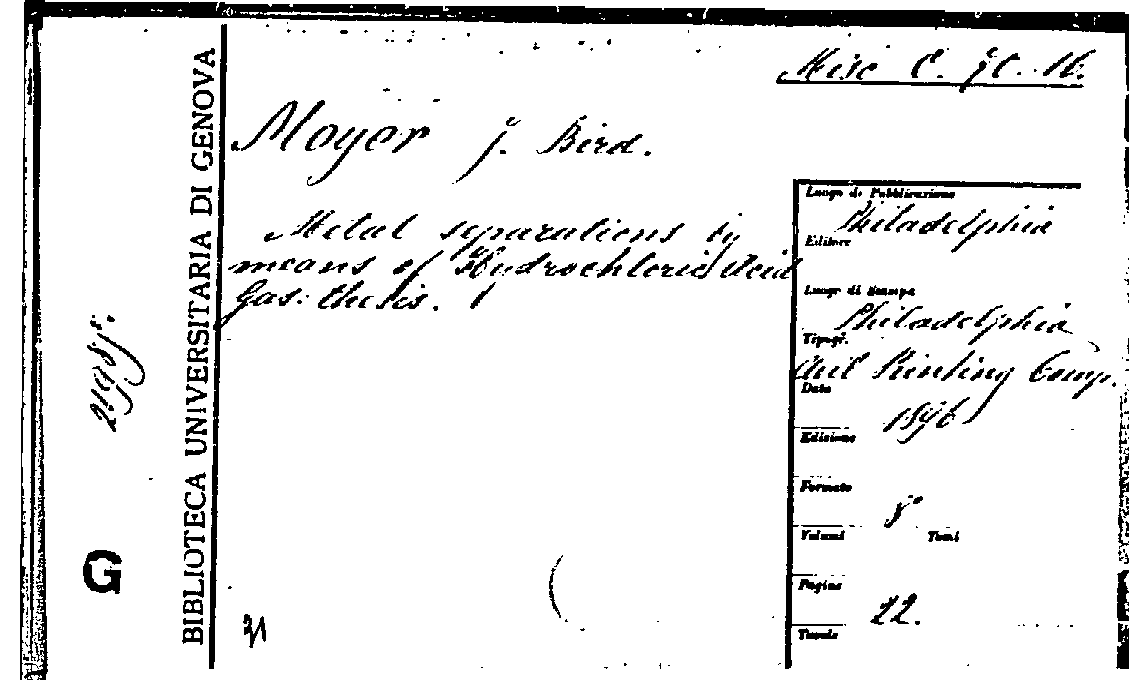 Misc C. 70. 16.
Moyer J. Bird.
Metal separations by
means of Hydrochloric Acid
Gas: thesis.
BIBLIOTECA UNIVERSITARIA DI GENOVA
G
31
Luogo di Pubblicazione
Philadelphia
Editore
Luogo di Stampa
Philadelphia
Tipogr.
Printing Comp.
Data
1896
Edizione
Formato
8°
Volumi Tomi
Pagine
22.
Tavole